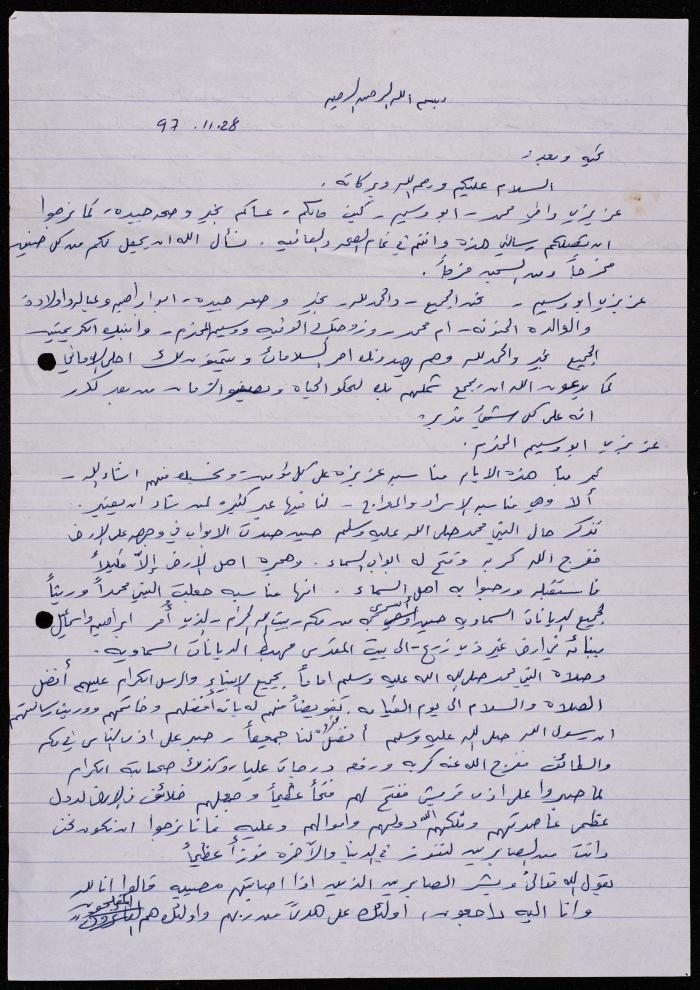 بسم الله الرحمن الرحيم
97 .11.28
تحية وبعد :
السلام عليكم ورحمة الله وبركاته .
عزيزي واخي محمد - ابو وسيم - كيف حالكم - عساكم بخير وصحه جيده - كما نرجوا
ان تصلكم رسالتي هذه وانتم في تمام الصحه والعافيه . نسأل الله ان يجعل لكم من كل ضيق
مخرجاً ومن السجن فرجاً .
عزيزي ابو وسيم - نحن الجميع - والحمد لله - بخير وصحه جيده - ابو ابراهيم وعياله واولاده
والوالده الحنونه - ام محمد - وزوجتك الوفيه ووسيم المحترم - وابنتيك الكريمتين
الجميع بخير والحمد لله وهم يهدونك احر السلامات ويتمنون لك احلى الاماني
كما يدعون الله ان يجمع شملهم بك لتحلو الحياه ويصفو الزمان من بعد كدر
انه على كل شيء قدير .
عزيزي ابو وسيم المحترم .
تمر بنا هذه الايام مناسبه عزيزه على كل مؤمن - ونحسبك منهم انشاء الله -
ألا وهي مناسبه الإسراء والمعراج - لنا فيها عبر كثيره لمن شاء ان يعتبر .
نتذكر حال النبي محمد صلى الله عليه وسلم حين صدت الابواب في وجهه على الارض
ففرج الله كربه وفتح له ابواب السماء . وهجره اهل الارض إلا قليلاً
فاستقبله ورحبوا به اهل السماء . انها مناسبه جعلت النبي محمداً وريثاً
لجميع الديانات السماويه حين أسري به من مكه - بيت الله الحرام - الذي أُمر ابراهيم واسماعيل
ببنائه في ارض غير ذي زرع - الى بيت المقدس مهبط الديانات السماويه .
وصلاة النبي محمد صلى الله عليه وسلم اماماً بجميع الانبياء والرسل الكرام عليهم أفضل
الصلاه والسلام الى يوم القيامه تفويضاً منهم له بانه افضلهم وخاتمهم ووريث رسالتهم
ان رسول الله صلى الله عليه وسلم أفضل قدوه لنا جميعاً - صبر على اذى الناس في مكه
والطائف ففرج الله عنه كربه ورفعه درجات عليا - وكذلك صحابته الكرام
لما صبروا على اذى قريش ففتح لهم فتحاً عظيماً وجعلهم خلائف في الارض لدول
عظمى عاصرتهم وملكهم الله دولهم واموالهم وعليه فاننا نرجوا ان نكون نحن
وانت من الصابرين لنفوز في الدنيا والآخره فوزاً عظيماً
يقول الله تعالى وبشر الصابرين الذين اذا اصابتهم مصيبه قالوا انا لله
وانا اليه راجعون ، اولئك على هدىً من ربهم واولئك هم المفلحون